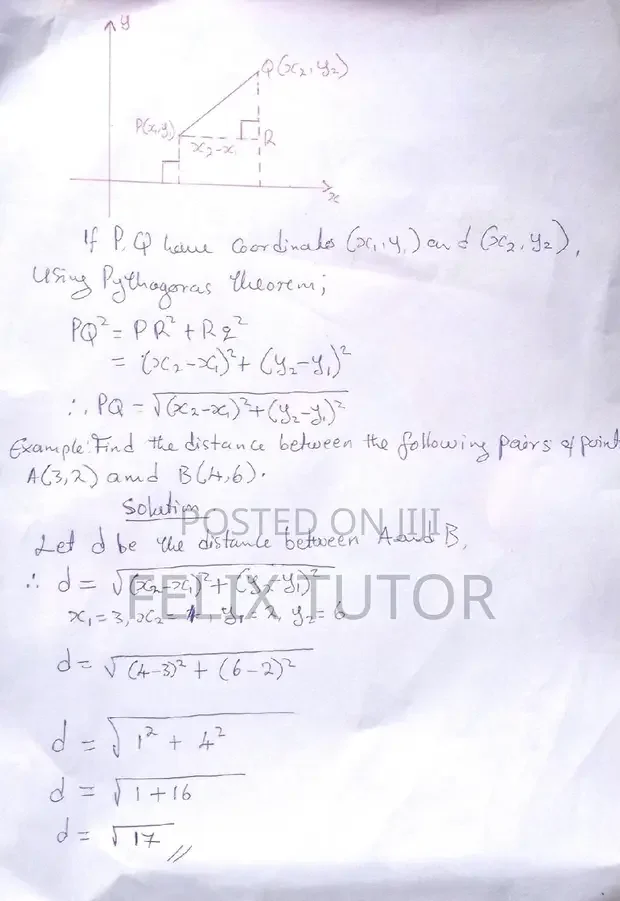 y
Q(x₂, y₂)
P(x₁, y₁)
x₂-x₁
R
x
If P, Q have coordinates (x₁, y₁) and (x₂, y₂),
Using Pythagoras theorem;
PQ² = PR² + Rq²
= (x₂-x₁)² + (y₂-y₁)²
∴ PQ = √(x₂-x₁)²+(y₂-y₁)²
Example: Find the distance between the following pairs of point
A(3,2) and B(4,6).
Solution
POSTED ON JIJI
Let d be the distance between A and B,
∴ d = √(x₂-x₁)²+(y₂-y₁)²
FELIX TUTOR
x₁=3, x₂=4, y₁=2, y₂=6
d = √(4-3)² + (6-2)²
d = √1² + 4²
d = √1+16
d = √17 //